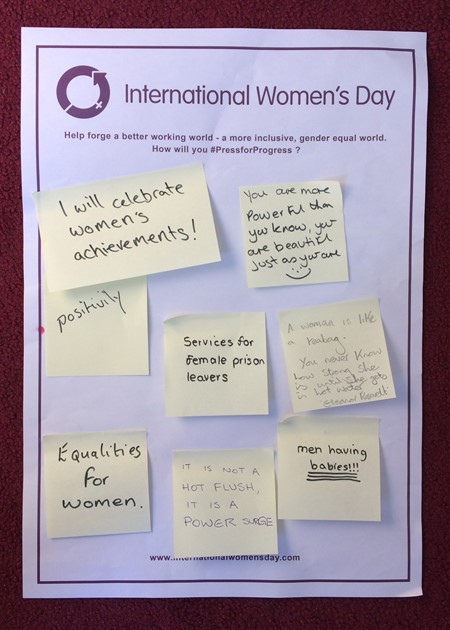 International Women's Day
Help forge a better working world - a more inclusive, gender equal world.
How will you #PressforProgress ?
I will celebrate
women's
achievements!
You are more
Powerful than
you know, you
are beautiful
just as you are
positivity
Services for
female prison
leavers
A woman is like
a teabag.
You never know
how strong she
is until she gets
in hot water
Eleanor Roosevelt
Equalities
for
women.
IT IS NOT A
HOT FLUSH,
IT IS A
POWER SURGE
men having
babies!!!
www.internationalwomensday.com